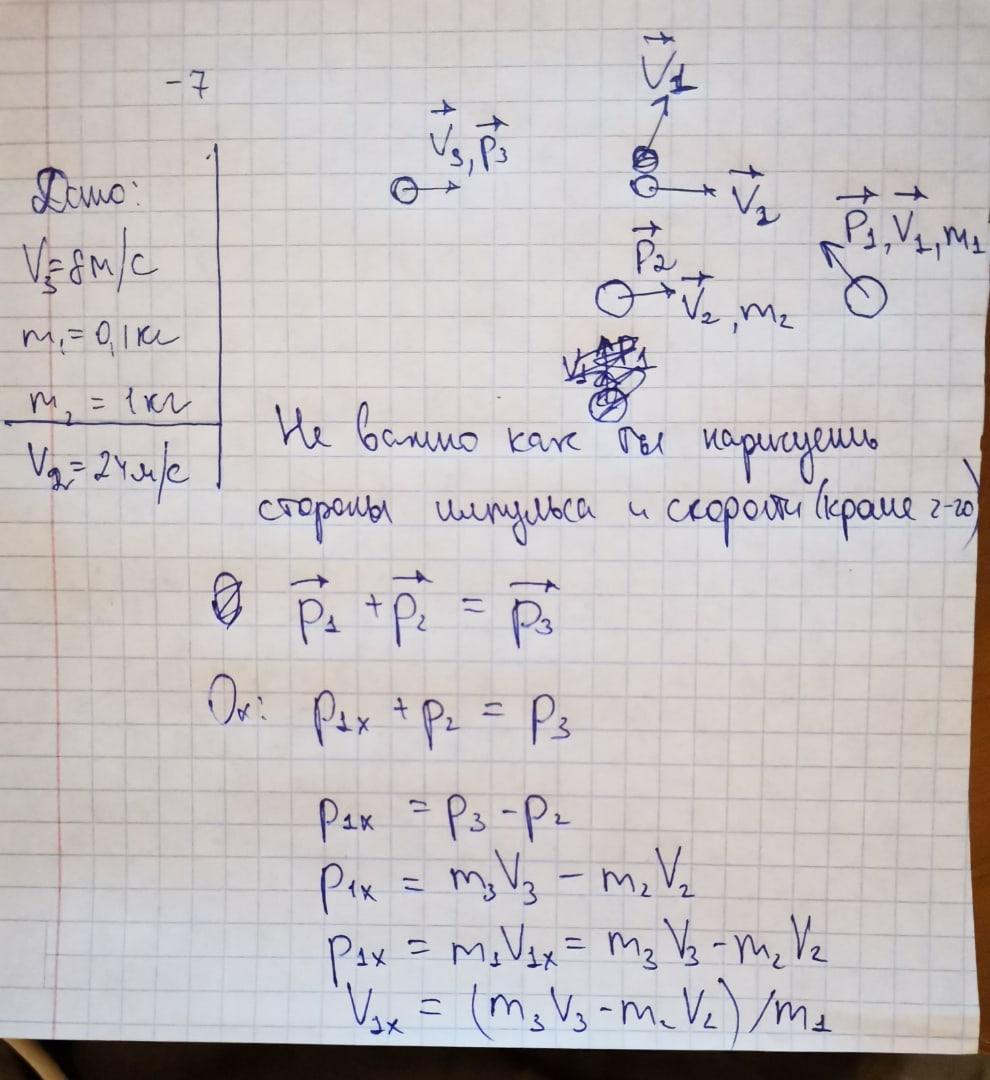 -7
V₁
V₃, p₃
V₂
Дано:
V₃=8м/с
m₁=0,1кг
m₂ = 1кг
V₂=24м/с
p₁, V₁, m₁
p₂
V₂, m₂
Не важно как ты нарисуешь
стороны импульса и скорости (кроме 2-го)
p₁ + p₂ = p₃
Oх: p₁ₓ + p₂ = p₃
p₁ₓ = p₃ - p₂
p₁ₓ = m₃V₃ - m₂V₂
p₁ₓ = m₁V₁ₓ = m₃V₃ - m₂V₂
V₁ₓ = (m₃V₃ - m₂V₂)/m₁